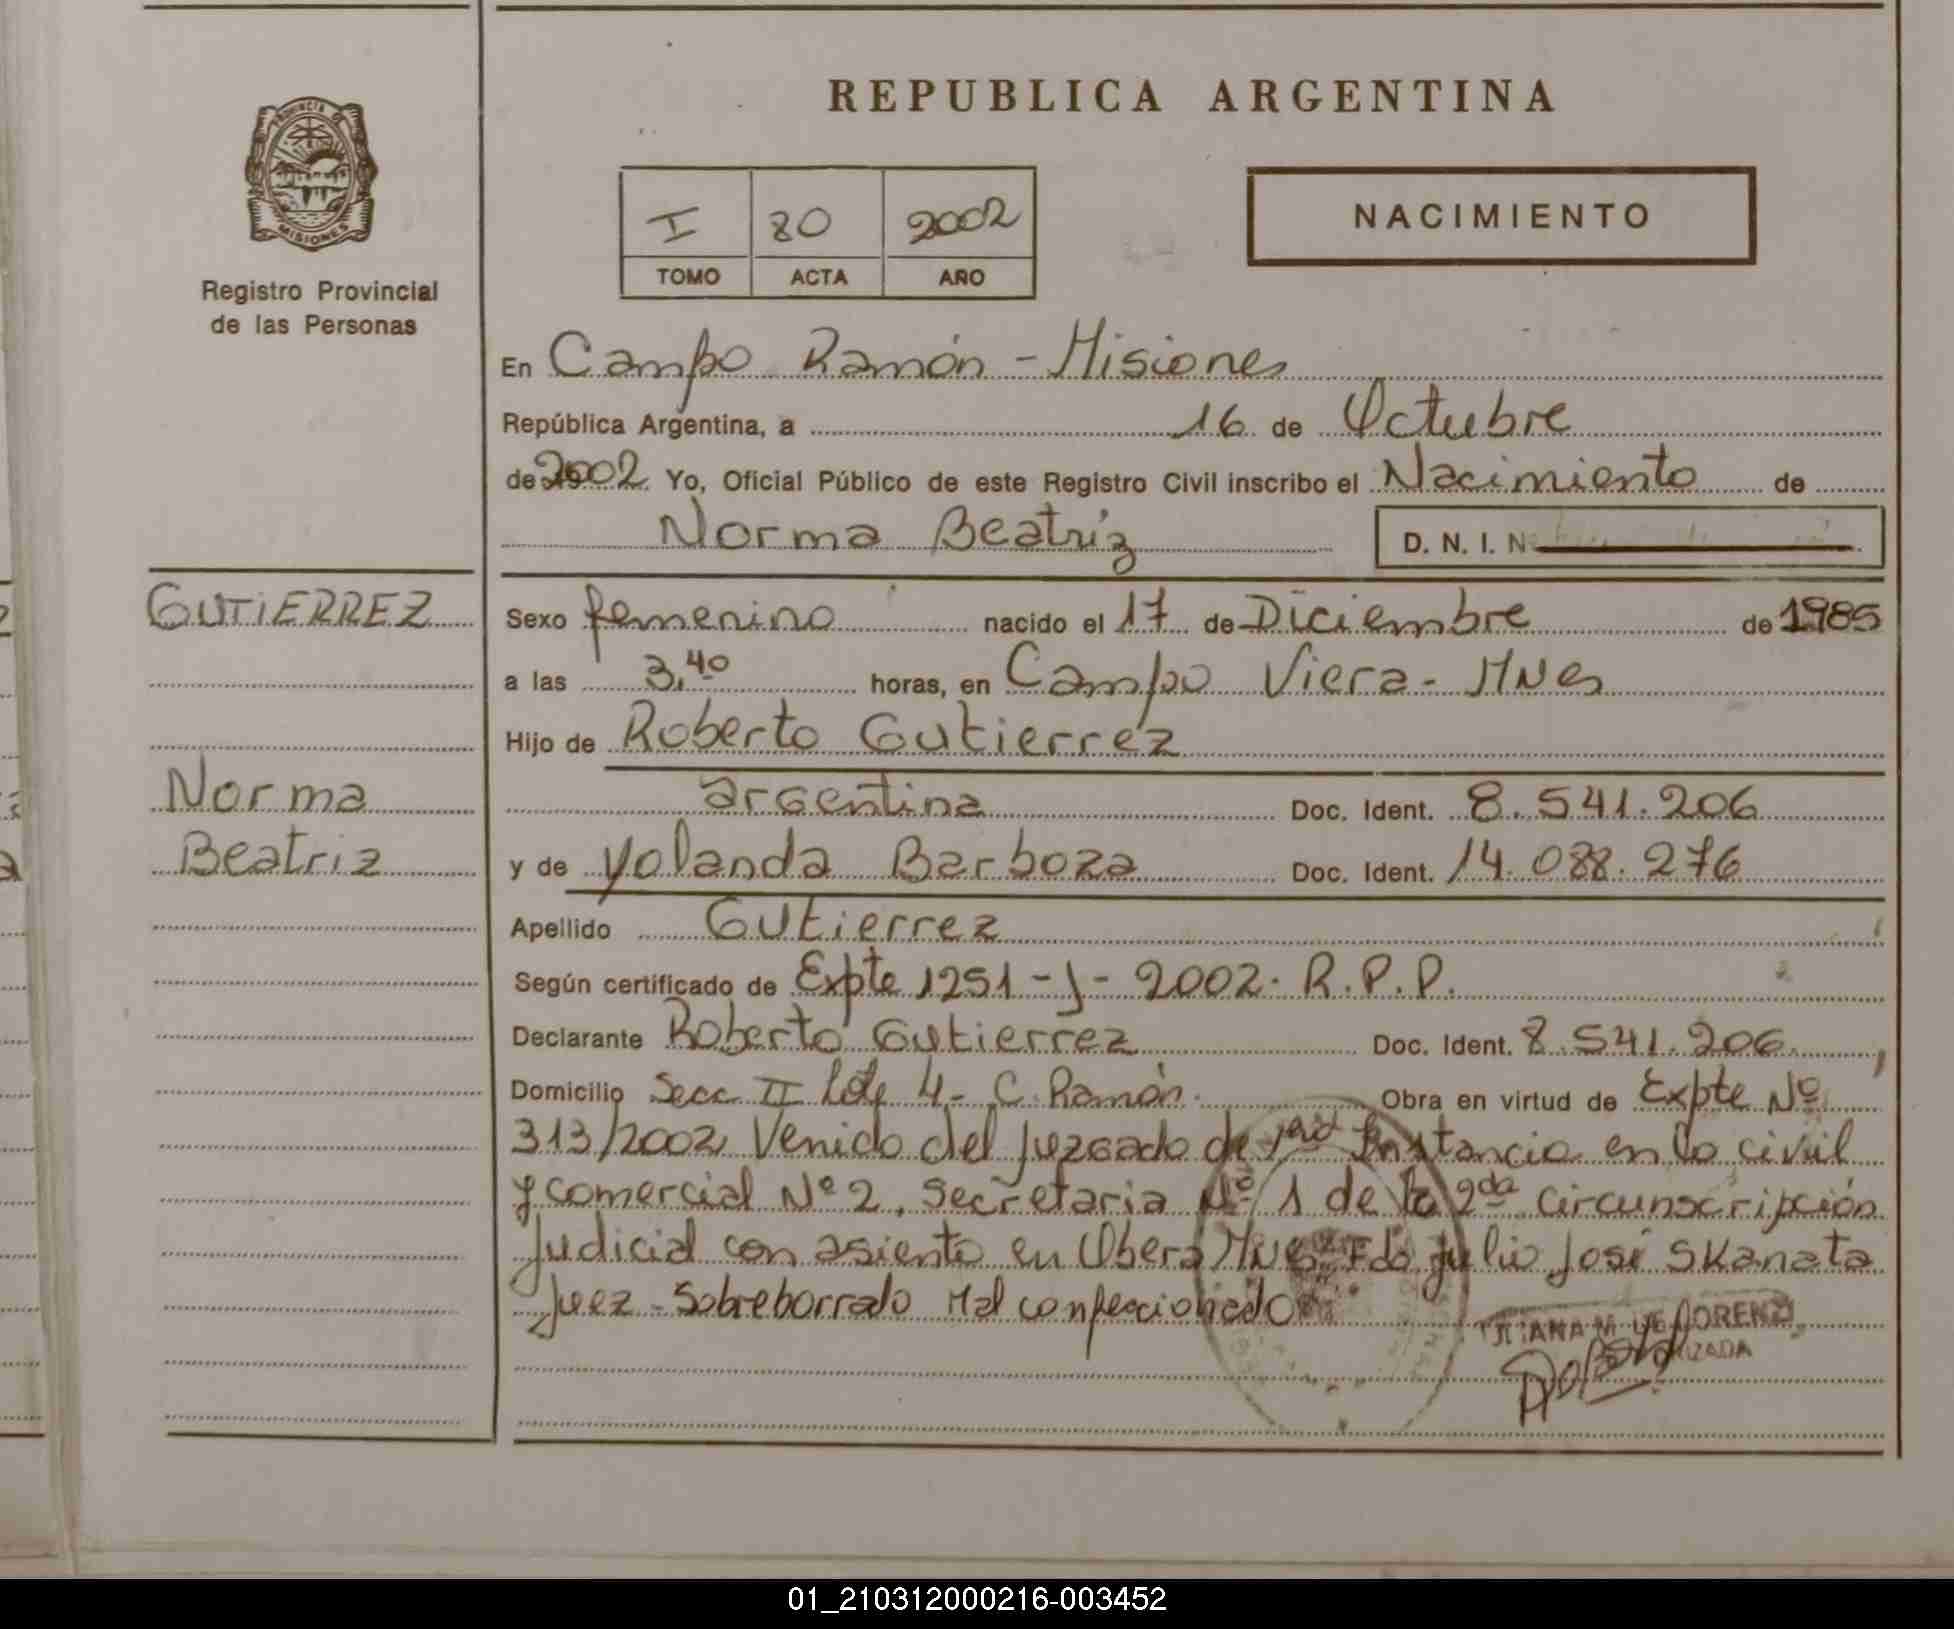 REPUBLICA ARGENTINA
PROVINCIA DE
MISIONES
Registro Provincial
de las Personas
I 80 2002
TOMO ACTA AÑO
NACIMIENTO
En Campo Ramón - Misiones
República Argentina, a 16 de Octubre
de 2002 Yo, Oficial Público de este Registro Civil inscribo el Nacimiento de
Norma Beatriz D. N. I. N
GUTIERREZ
Norma
Beatriz
Sexo femenino nacido el 17 de Diciembre de 1985
a las 3,40 horas, en Campo Viera - Mnes
Hijo de Roberto Gutierrez
argentina Doc. Ident. 8.541.206
y de Yolanda Barboza Doc. Ident. 14.088.276
Apellido Gutierrez
Según certificado de Expte 1251 - J - 2002. R.P.P.
Declarante Roberto Gutierrez Doc. Ident. 8.541.206.
Domicilio Secc II Lote 4 - C. Ramón. Obra en virtud de Expte Nº
313/2002 Venido del Juzgado de 1era Instancia en lo civil
y comercial Nº 2, Secretaria Nº 1 de la 2da circunscripción
Judicial con asiento en Obera Mnes. Fdo Julio José Skanata
Juez - Sobreborrado Mal confeccionado
01_210312000216-003452